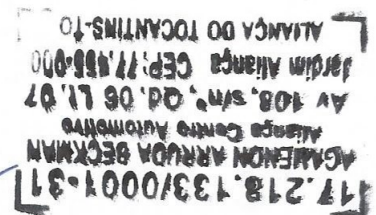 17.218.133/0001-31
AGAMENON ARRUDA BECKMAN
Aliança Centro Automotivo
AV 108, s/nº, Qd. 06 Lt. 07
Jardim Aliança CEP:77.455-000
ALIANÇA DO TOCANTINS-TO